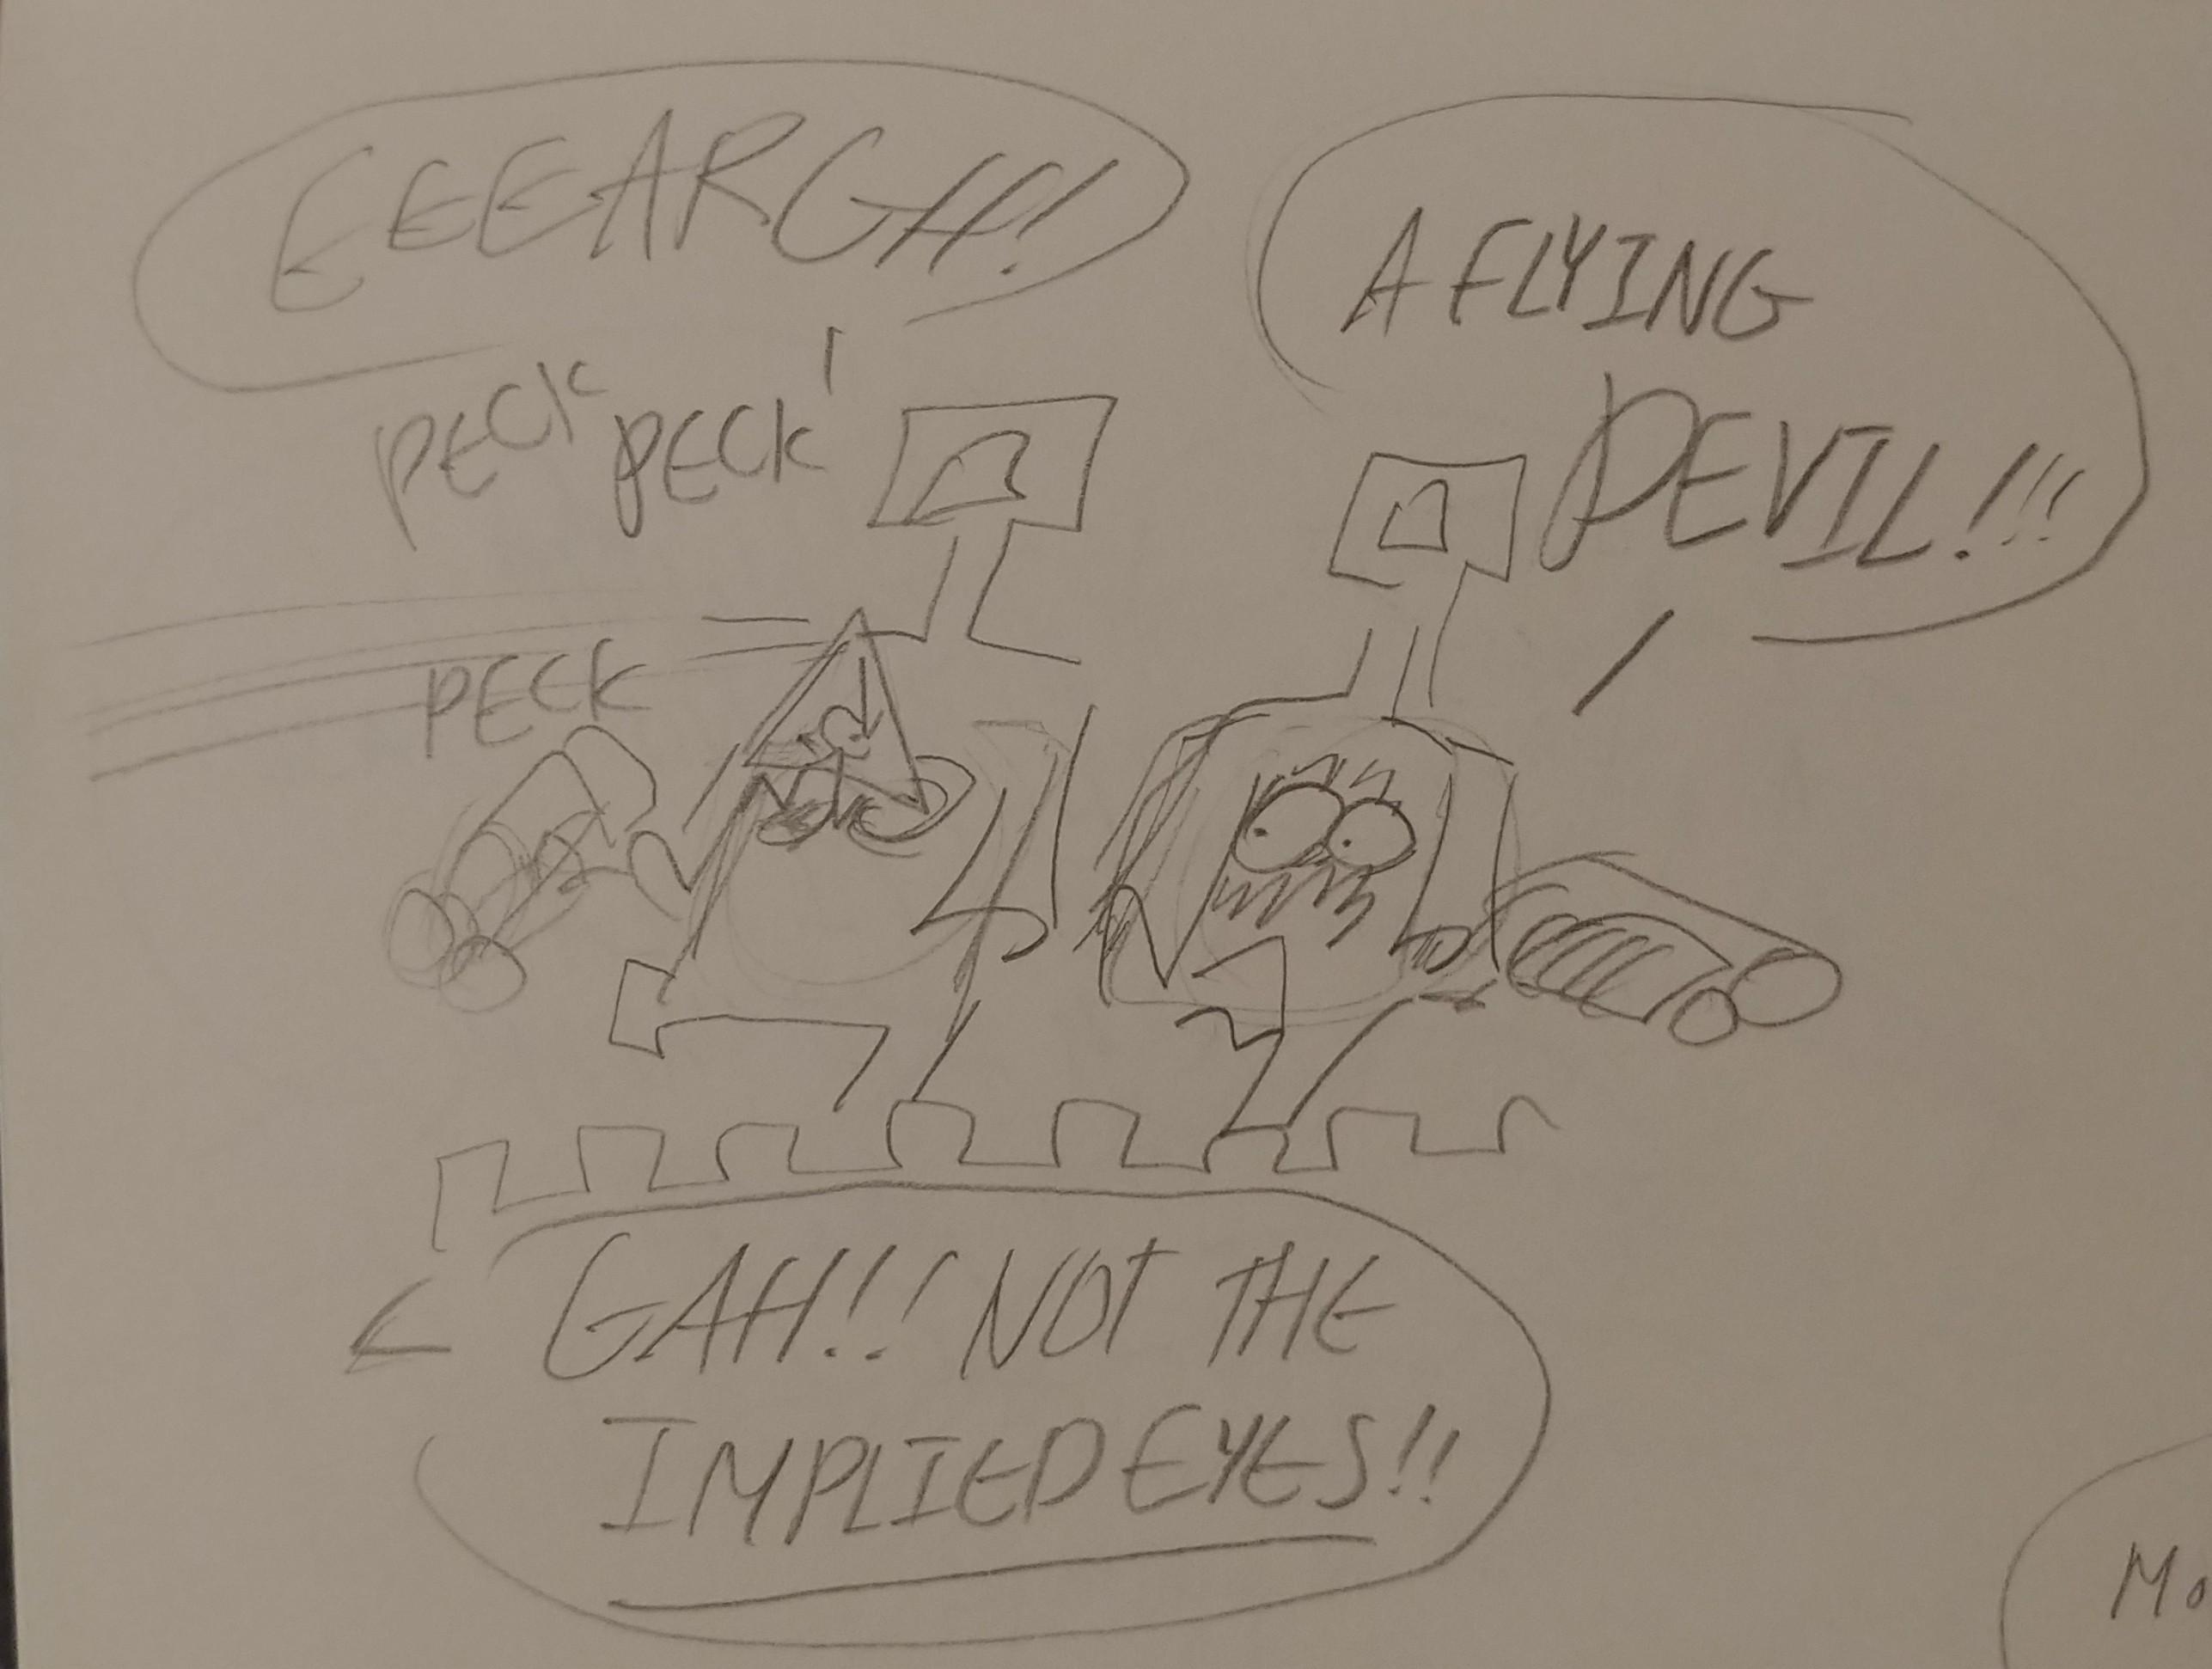 EEEARGH!
A FLYING
DEVIL!!!
PECK PECK
PECK
GAH!! NOT THE
IMPLIED EYES!!
Mo